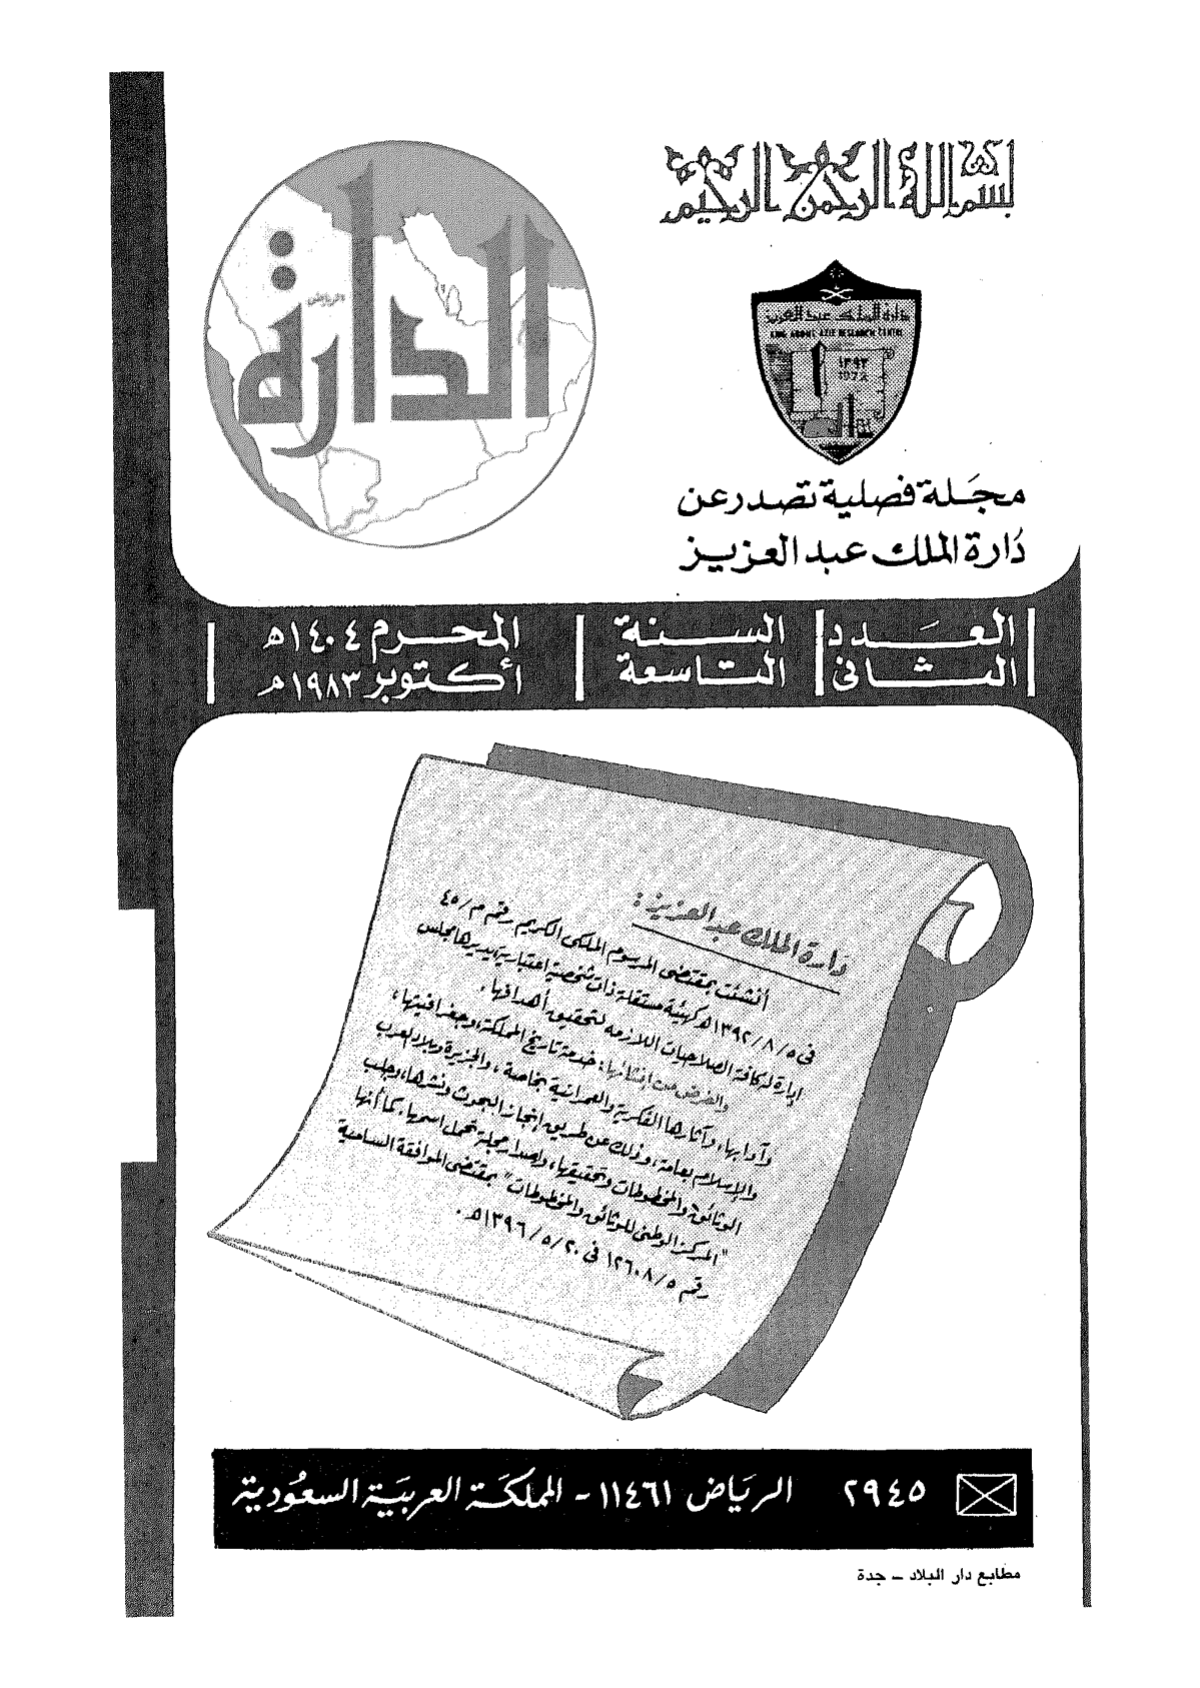 بسم الله الرحمن الرحيم
الدارة
الرياض
دارة الملك عبد العزيز
KING ABDUL AZIZ RESEARCH CENTRE
١٣٩٢
مجَلة فصلية تصدر عن
دَارة الملك عبد العزيز
العَدد الثاني
السنة التاسعة
المحرم ١٤٠٤ه
أكتوبر ١٩٨٣م
دَارة الملك عبد العزيز :
أنشئت بمقتضى المرسوم الملكى الكريم رقم م/٤٥
فى ١٣٩٢/٨/٥ه كهيئة مستقلة ذات شخصية اعتبارية، يديرها مجلس
إدارة له كافة الصلاحيات اللازمه لتحقيق أهدافها .
والغرض من إنشائها : خدمة تاريخ المملكة، وجغرافيتها،
وآدابها، وآثارها الفكرية والعمرانية بخاصة، والجزيرة وبلاد العرب
والإسلام بعامة، وذلك عن طريق إنجاز البحوث ونشرها، وجلب
الوثائق والمخطوطات وتحقيقها، وإصدار مجلة تحمل اسمها، كما أنها
"المركز الوطنى للوثائق والمخطوطات" بمقتضى الموافقة السامية
رقم ١٢٦٠٨/٥ فى ١٣٩٦/٥/٢٠ه .
٢٩٤٥ الريَاض ١١٤٦١ - المملكَة العربيَة السعُودية
مطابع دار البلاد – جدة